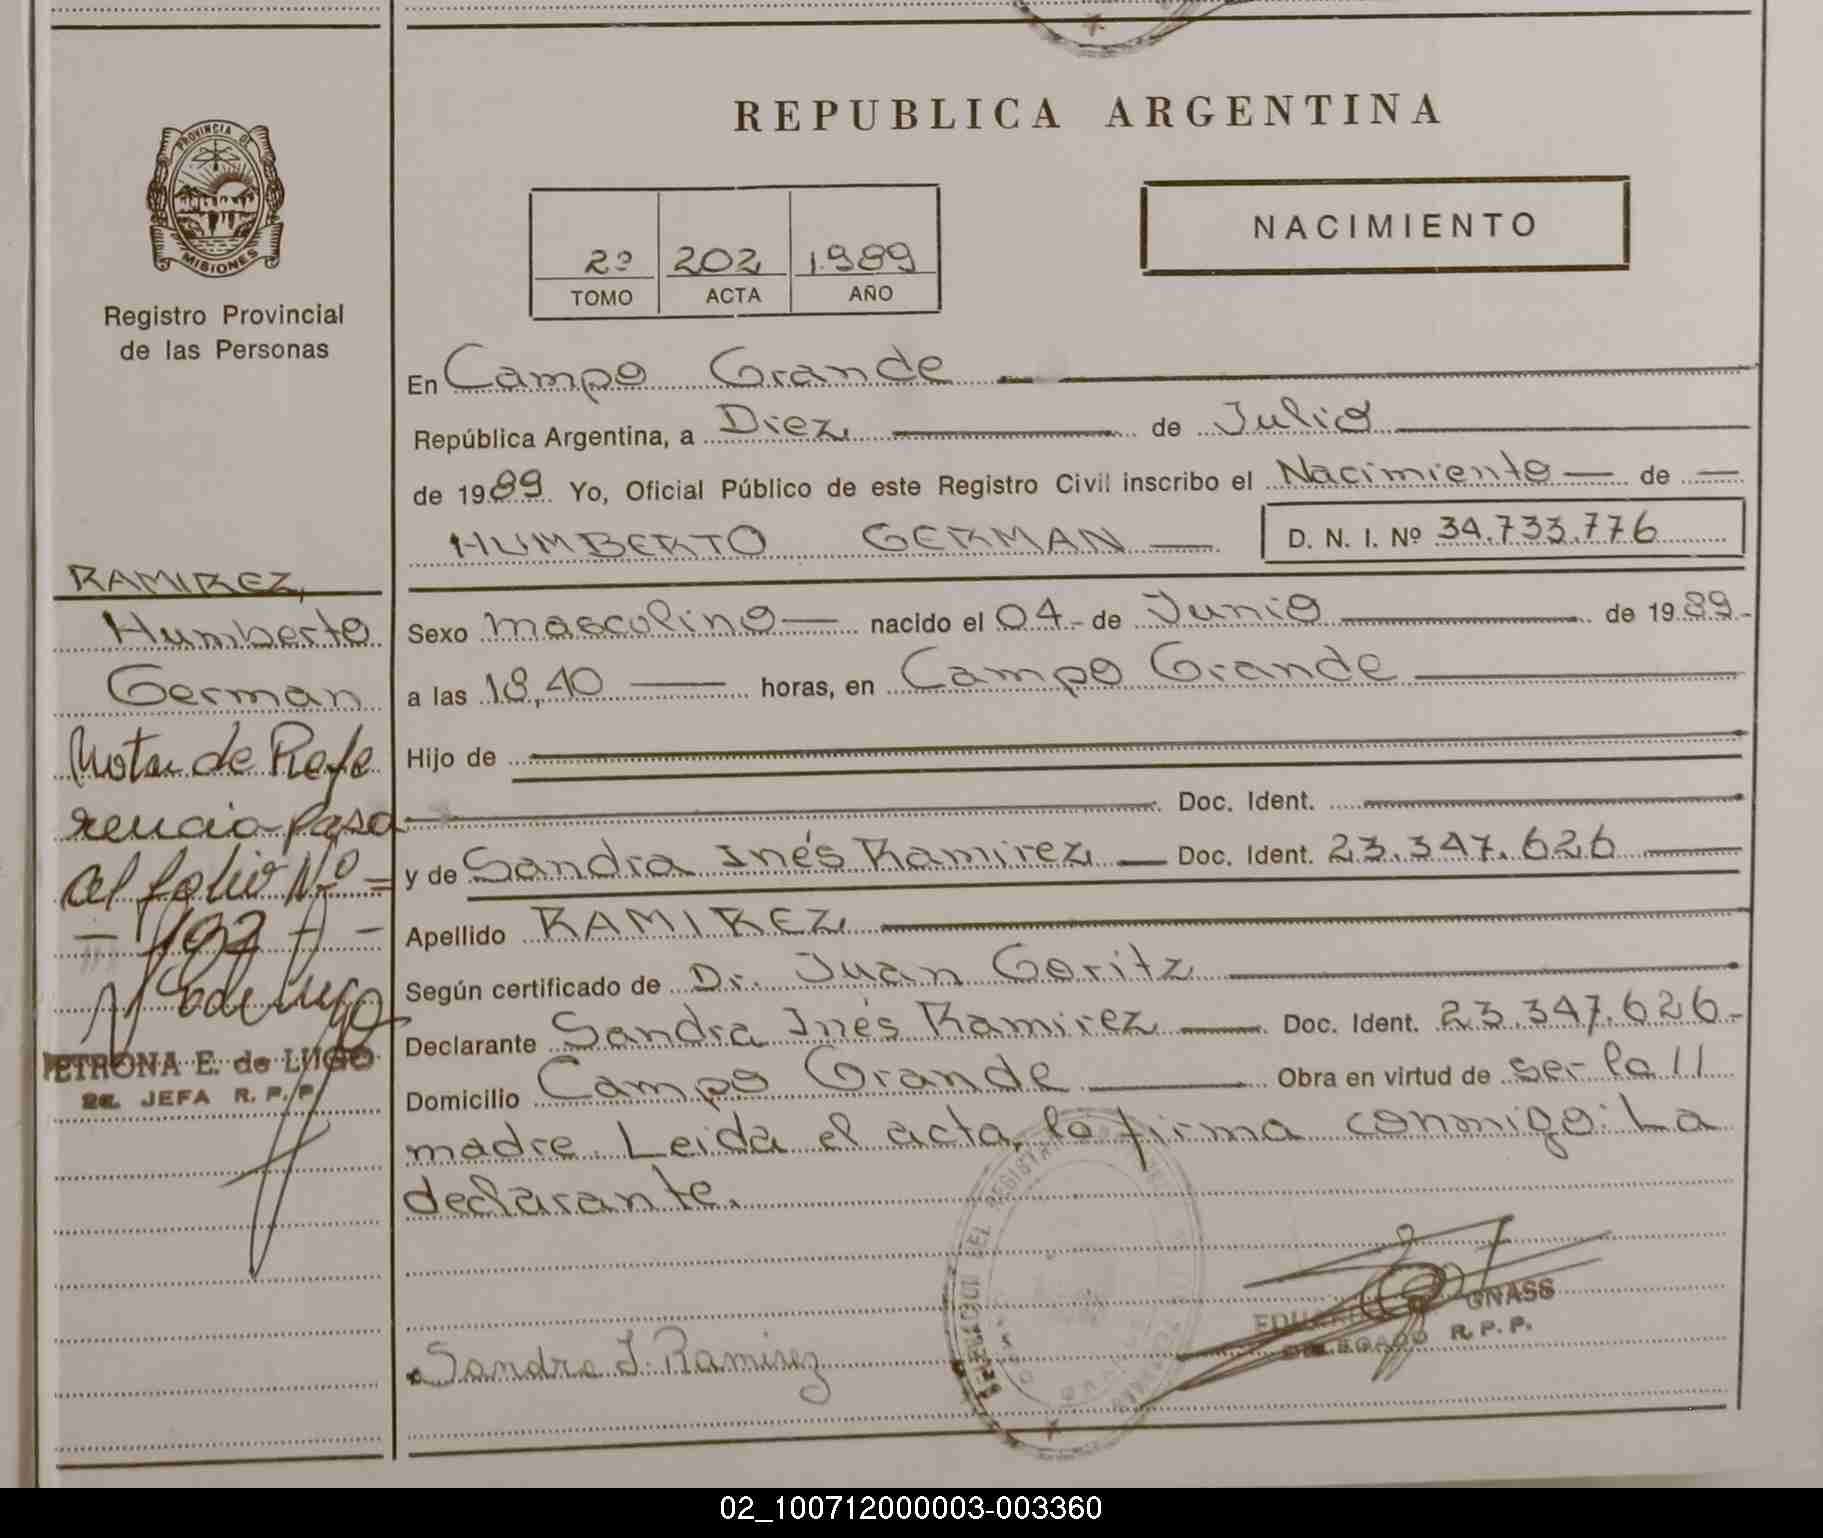 REPUBLICA ARGENTINA
PROVINCIA DE
MISIONES
Registro Provincial
de las Personas
NACIMIENTO
2º 202 1989
TOMO ACTA AÑO
En Campo Grande
República Argentina, a Diez de Julio
de 1989 Yo, Oficial Público de este Registro Civil inscribo el Nacimiento de
HUMBERTO GERMAN D. N. I. Nº 34.733.776
RAMIREZ,
Humberto
German
Nota de Refe
rencia pasa
al folio Nº
PETRONA E. de LUGO
2a. JEFA R. P. P.
Sexo masculino nacido el 04 de Junio de 1989
a las 18,40 horas, en Campo Grande
Hijo de
Doc. Ident.
y de Sandra Inés Ramirez Doc. Ident. 23.347.626
Apellido RAMIREZ
Según certificado de Dr. Juan Goritz
Declarante Sandra Inés Ramirez Doc. Ident. 23.347.626
Domicilio Campo Grande Obra en virtud de ser la
madre. Leida el acta, la firma conmigo: La
declarante.
GNASS
DELEGADO R. P. P.
Sandra I. Ramirez
02_100712000003-003360